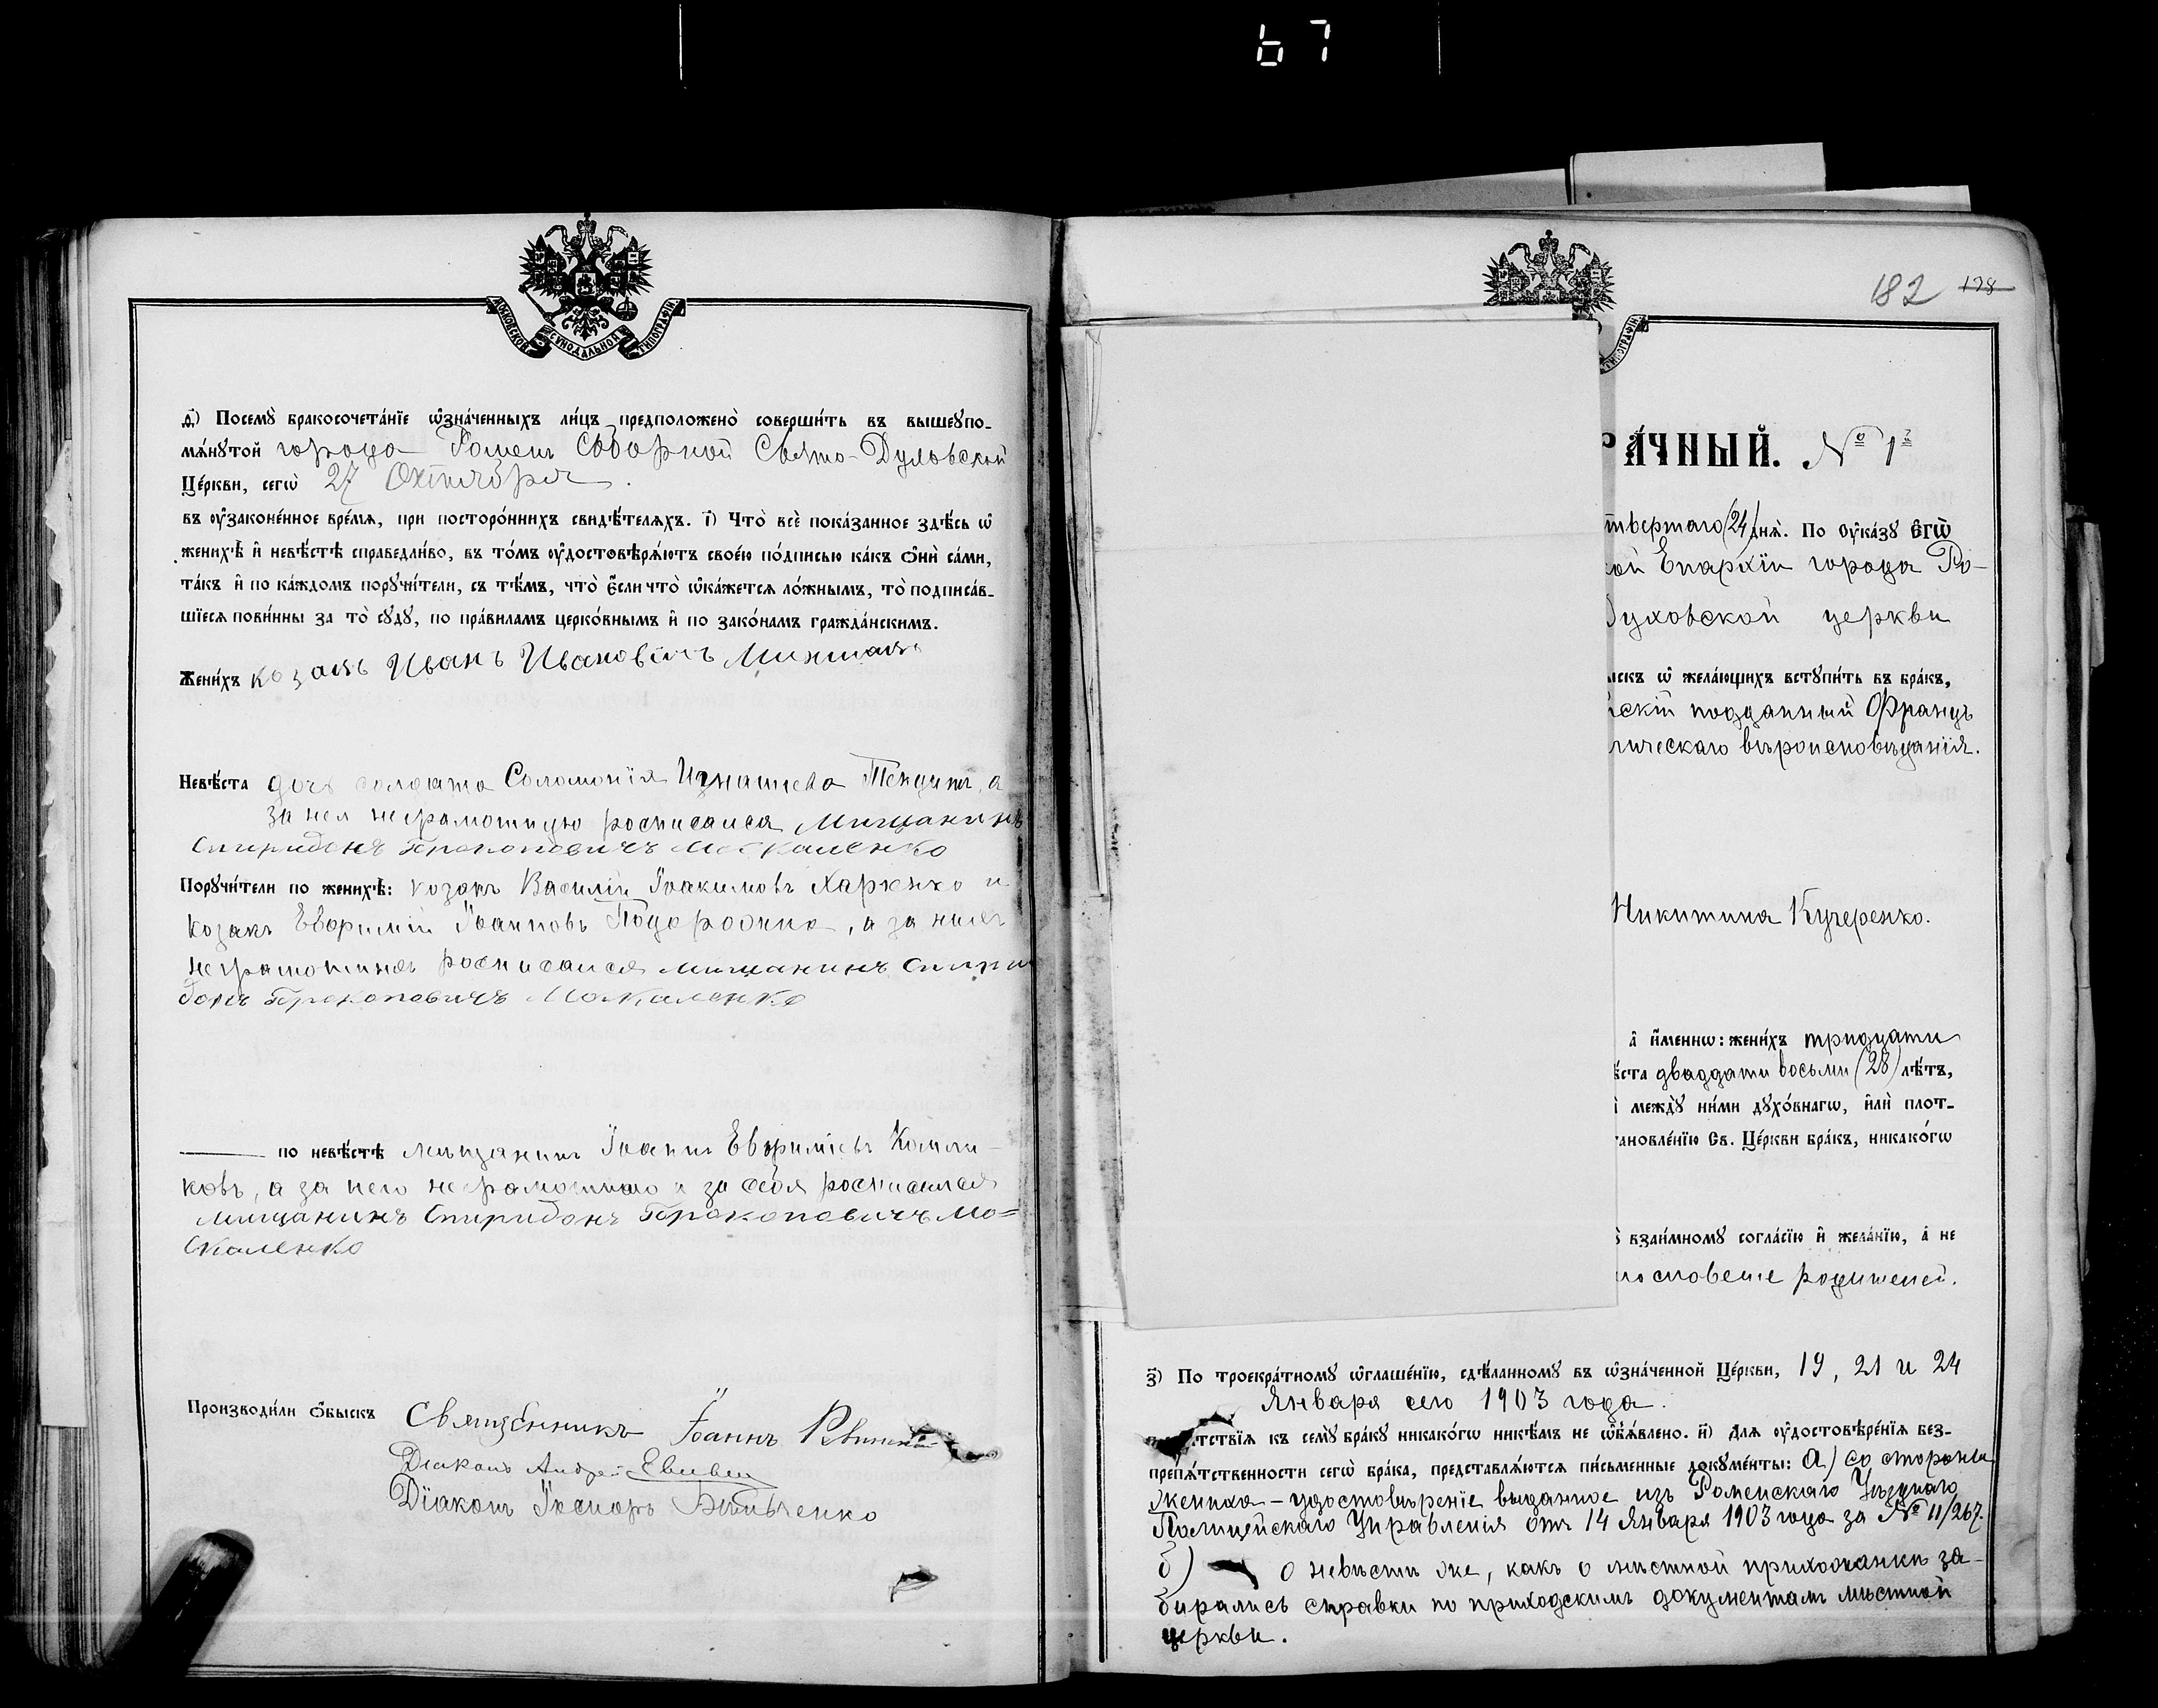 67
МОСКОВСКОЙ СѴНОДАЛЬНОЙ ТИПОГРАФІИ
д҃) Посемꙋ̀ бракосочета́нїе ѡ҆зна́ченныхъ ли́цъ предположено̀ соверши́ть въ вышеꙋпо-
мѧ́нꙋтой города Роменъ Соборной Свято-Духовской
Це́ркви, сегѡ̀ 27 Октября
въ ᲂу҆законе́нное вре́мѧ, при посторо́ннихъ свидѣ́телѧхъ. і҃) Что̀ всѐ пока́занное здѣ́сь ѡ҆
женихѣ̀ и҆ невѣ́стѣ справедли́во, въ то́мъ ᲂу҆достовѣрѧ́ютъ свое́ю по́дписью ка́къ ѻ҆нѝ са́ми,
та́къ и҆ по ка́ждомъ порꙋчи́тели, съ тѣ́мъ, что̀ є҆́сли что̀ ѡ҆ка́жетсѧ ло́жнымъ, то̀ подписа́в-
шїесѧ пови́нны за то̀ сꙋдꙋ̀, по пра́виламъ церко́внымъ и҆ по зако́намъ гражда́нскимъ.
Жени́хъ козакъ Иванъ Ивановичъ
Невѣ́ста дочь солдата Соломонія Игнатіева а
за нея неграмотную росписался мищанинъ
Спиридонъ Прокоповичъ Москаленко
Порꙋчи́тели по женихѣ̀: козакъ Василій Іоакимовъ Харкенко и
козакъ Евфимій Іоанновъ а за нихъ
неграмотныхъ росписался мищанинъ Спири
донъ Прокоповичъ Москаленко
по невѣ́стѣ мѣщанинъ Іоаннъ Евфиміевъ
ковъ, а за него неграмотнаго и за себя росписался
мищанинъ Спиридонъ Прокоповичъ Мо=
скаленко
Производи́ли ѻ҆́быскъ Священникъ Іоаннъ
Діаконъ Андрей
Діаконъ
182 128
ТИПОГРАФІИ
РА́ЧНЫЙ. № 1й
твертаго (24) днѧ̀. По ᲂу҆ка́зꙋ Є҆гѡ̀
ой Епархіи города Ро-
Духовской церкви
ыскъ ѡ҆ жела́ющихъ встꙋпи́ть въ бра́къ,
йскій подданный Францъ
лическаго вѣроисповѣданія.
Никитина Кучеренко.
а҆ и҆́меннѡ: жени́хъ тридцати
ѣ́ста двадцати восьми (28) лѣ́тъ,
междꙋ̀ ни́ми дꙋхо́внагѡ, и҆лѝ плот-
ановле́нїю Св. Це́ркви бра́къ, никако́гѡ
взаи́мномꙋ согла́сїю и҆ жела́нїю, а҆ не
гословеніе родителей.
з҃) По троекра́тномꙋ ѡ҆глаше́нїю, сдѣ́ланномꙋ въ ѡ҆зна́ченной Це́ркви, 19, 21 и 24
Января сего 1903 года.
тствїѧ къ семꙋ̀ бра́кꙋ никако́гѡ никѣ́мъ не ѡ҆б̾ѧ́влено. и҃) Для ᲂу҆достовѣре́нїѧ без-
препѧ́тственности сегѡ̀ бра́ка, представлѧ́ютсѧ пи́сьменные докꙋме́нты: а) со стороны
жениха – удостовѣреніе выданное изъ Роменскаго Уѣзднаго
Полицейскаго Управленія отъ 14 Января 1903 года за № 11/267.
б) о невѣстѣ же, какъ о мѣстной прихожанкѣ за-
бирались справки по приходскимъ документамъ мѣстной
церкви.